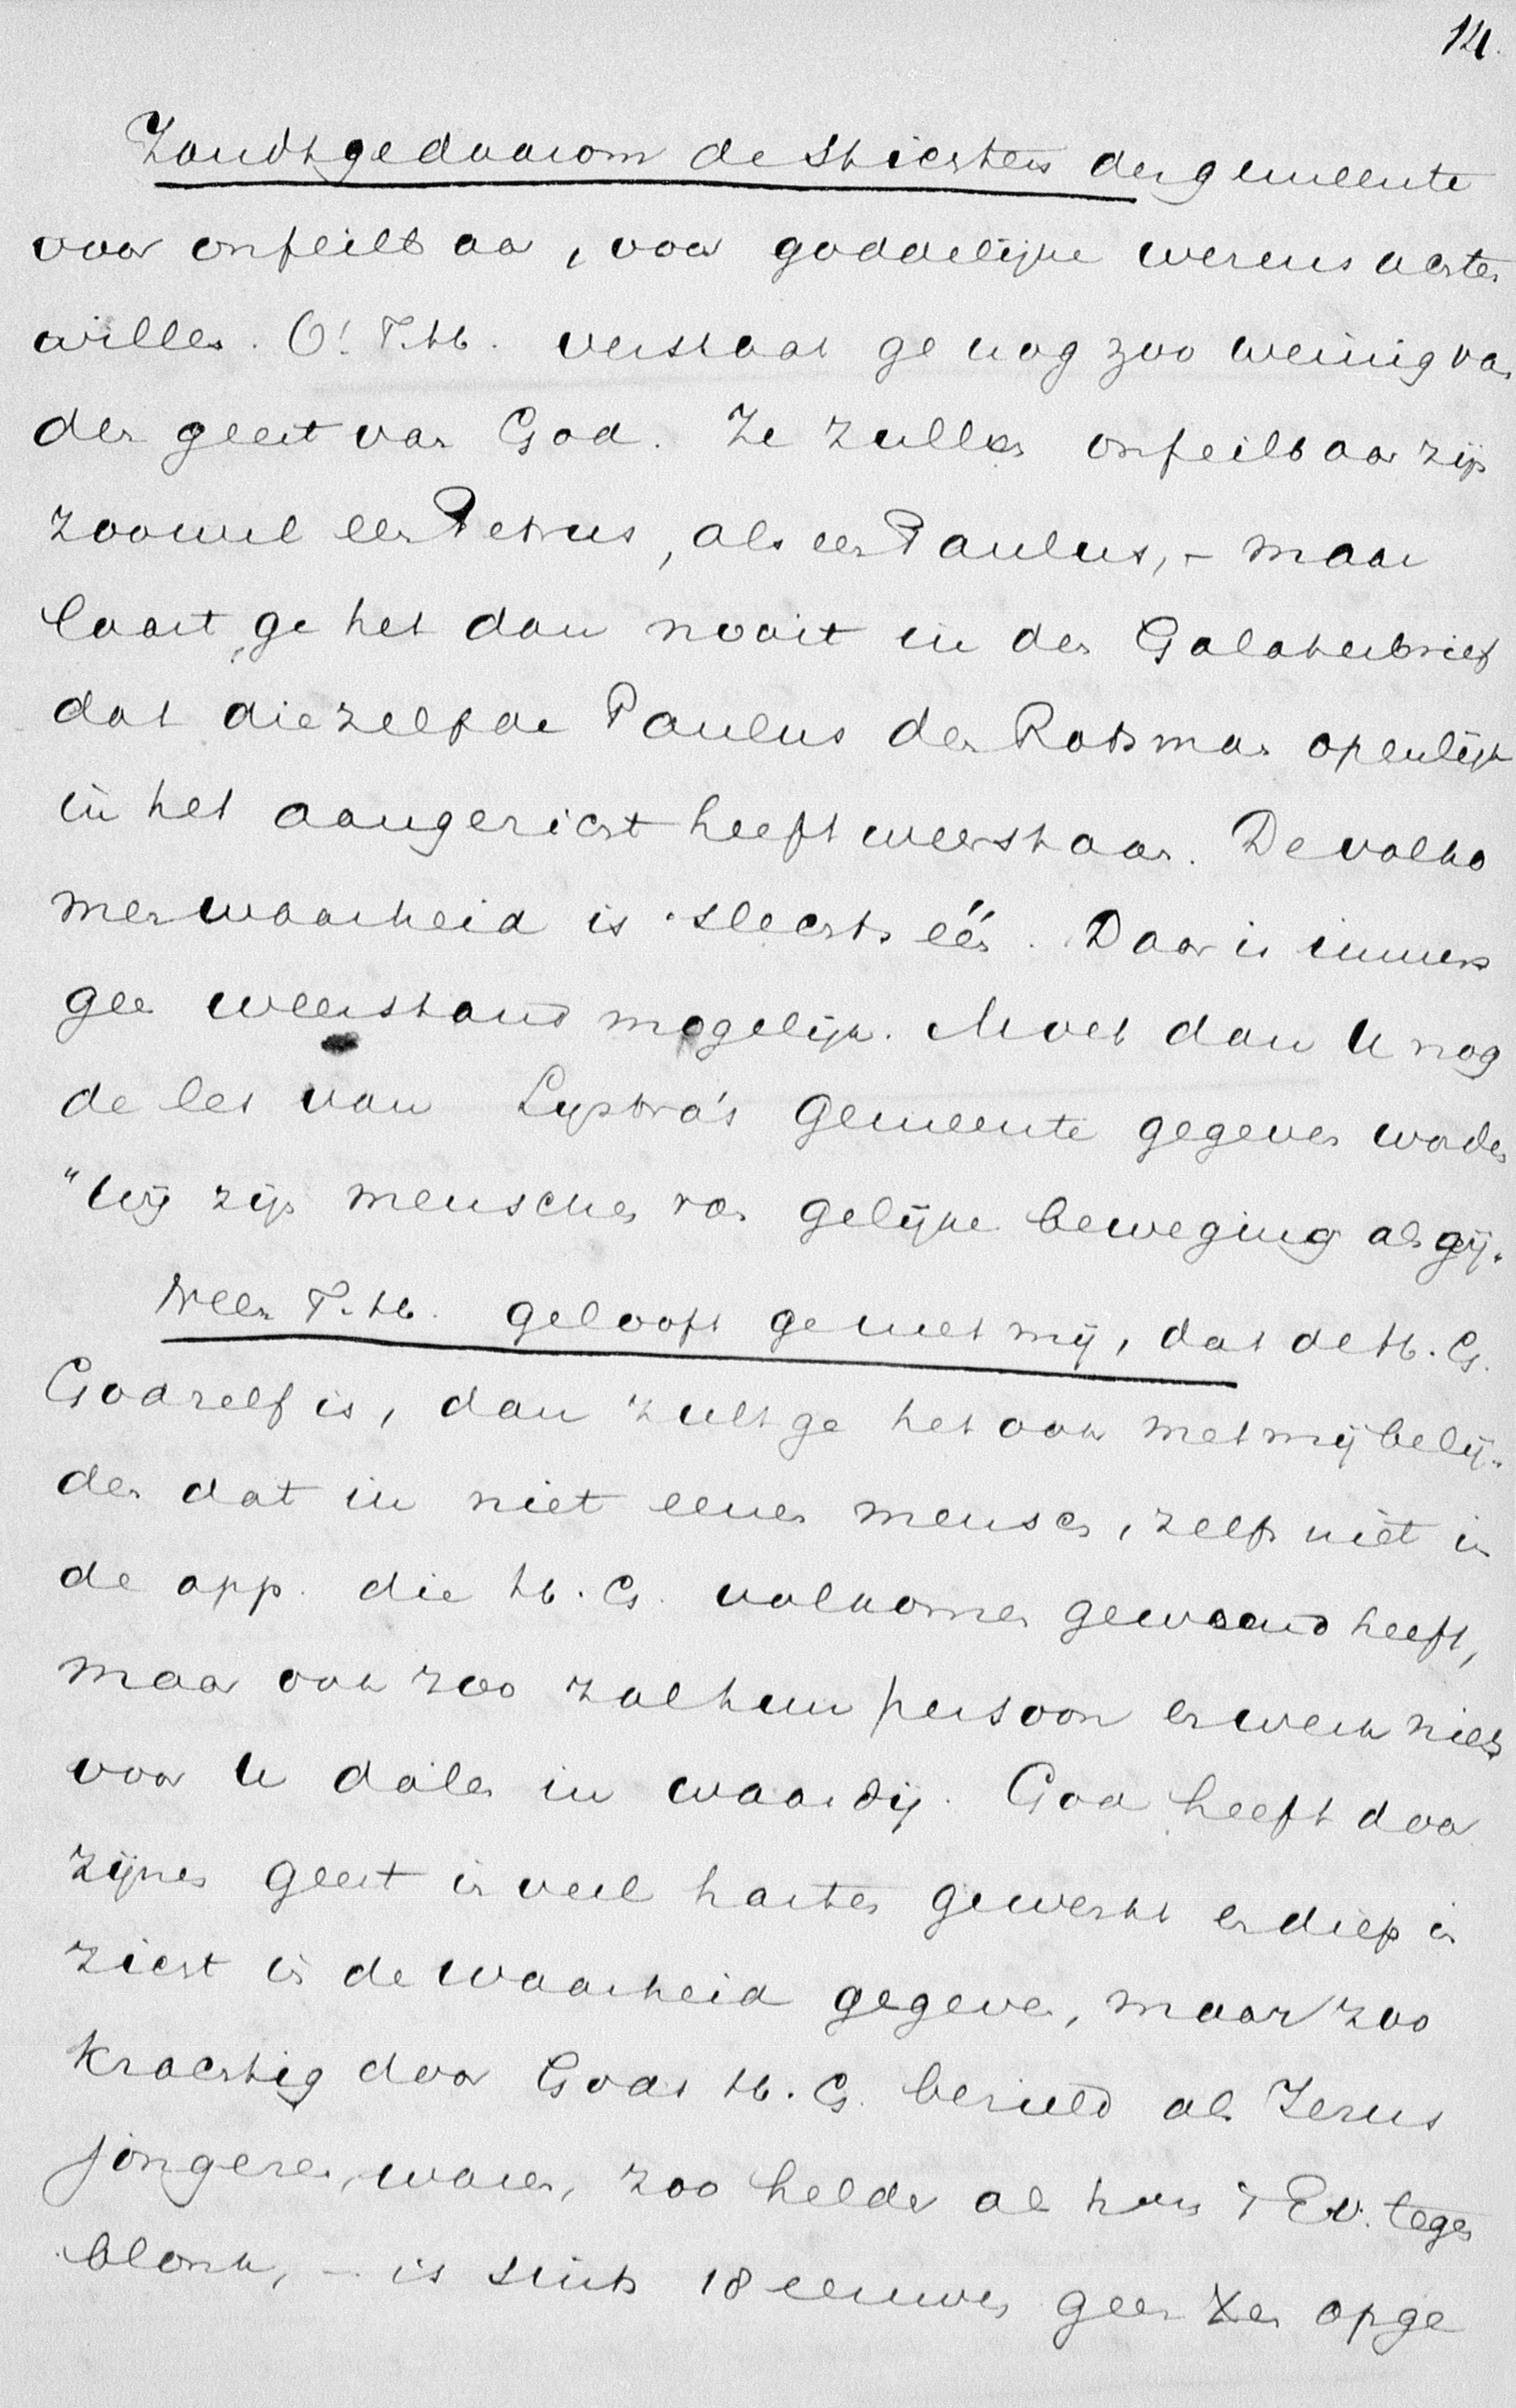 14.
Zoudt ge daarom de stichters der gemeente
voor onfeilbaar, voor goddelijke wezens achten
willen. O! T.H. verstaat ge nog zoo weinig van
den geest van God. Ze zullen onfeilbaar zijn
zoowel een Petrus, als een Paulus, – maar
laast ge het dan nooit in den Galatenbrief
dat diezelfde Paulus den Rotsman openlijk
in het aangezicht heeft weerstaan. De volko
men waarheid is slechts één. Daar is immers
geen weerstand mogelijk. Moet dan U nog
de les van Lystra's gemeente gegeven worden
"Wij zijn menschen van gelijke beweging als gij."
Neen T.H. gelooft ge met mij, dat de H.G.
God zelf is, dan zult ge het ook met mij belij-
den dat in niet eenen mensch, zelfs niet in
de app. die H.G. volkomen gewoond heeft,
maar ook zoo zal hun persoon en werk niets
voor U dalen in waardij. God heeft door
zijnen geest in veel harten gewerkt en diep in
zicht in de waarheid gegeven, maar zoo
krachtig door Gods H.G. bezield als Jezus
jongeren, waren, zoo helder als hun 't Ev. tegen
blonk, – is sinds 18 eeuwen geen Xen opge